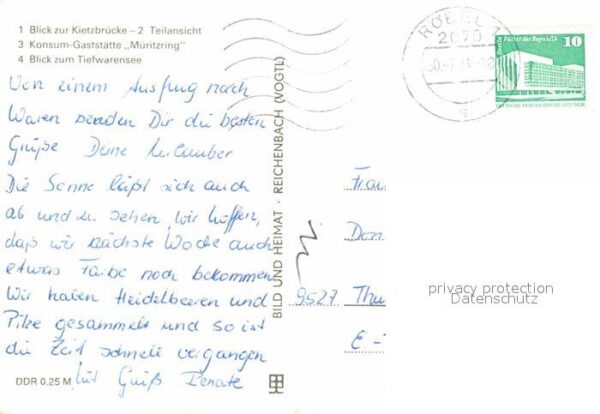 1 Blick zur Kietzbrücke – 2 Teilansicht
3 Konsum-Gaststätte „Müritzring"
4 Blick zum Tiefwarensee
Von einem Ausflug nach
Waren senden Dir die besten
Grüße Deine Urlauber
Die Sonne läßt sich auch
ab und zu sehen, wir hoffen,
daß wir nächste Woche auch
etwas Farbe noch bekommen
Wir haben Heidelbeeren und
Pilze gesammelt und so ist
die Zeit schnell vergangen
Mit Gruß Renate
DDR 0,25 M
BILD UND HEIMAT · REICHENBACH (VOGTL)
RÖBEL
2070
Palast der Republik
10
Frau
9527 Thu
E -
privacy protection
Datenschutz